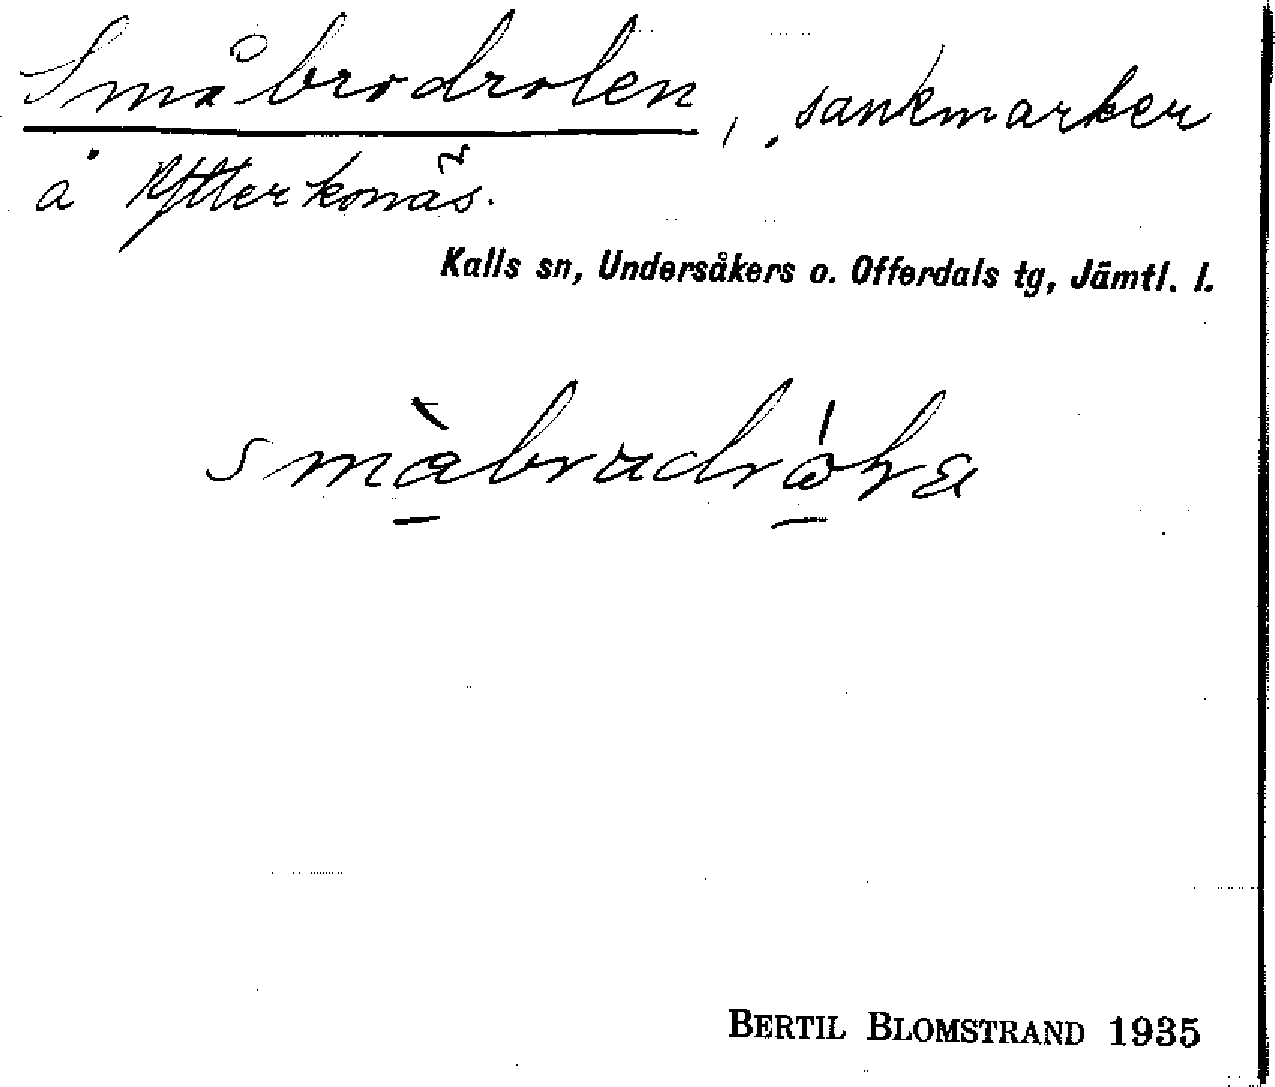 Småbrodrolen, sankmarker
å Ytterkonäs.
Kalls sn, Undersåkers o. Offerdals tg, Jämtl. l.
BERTIL BLOMSTRAND 1935